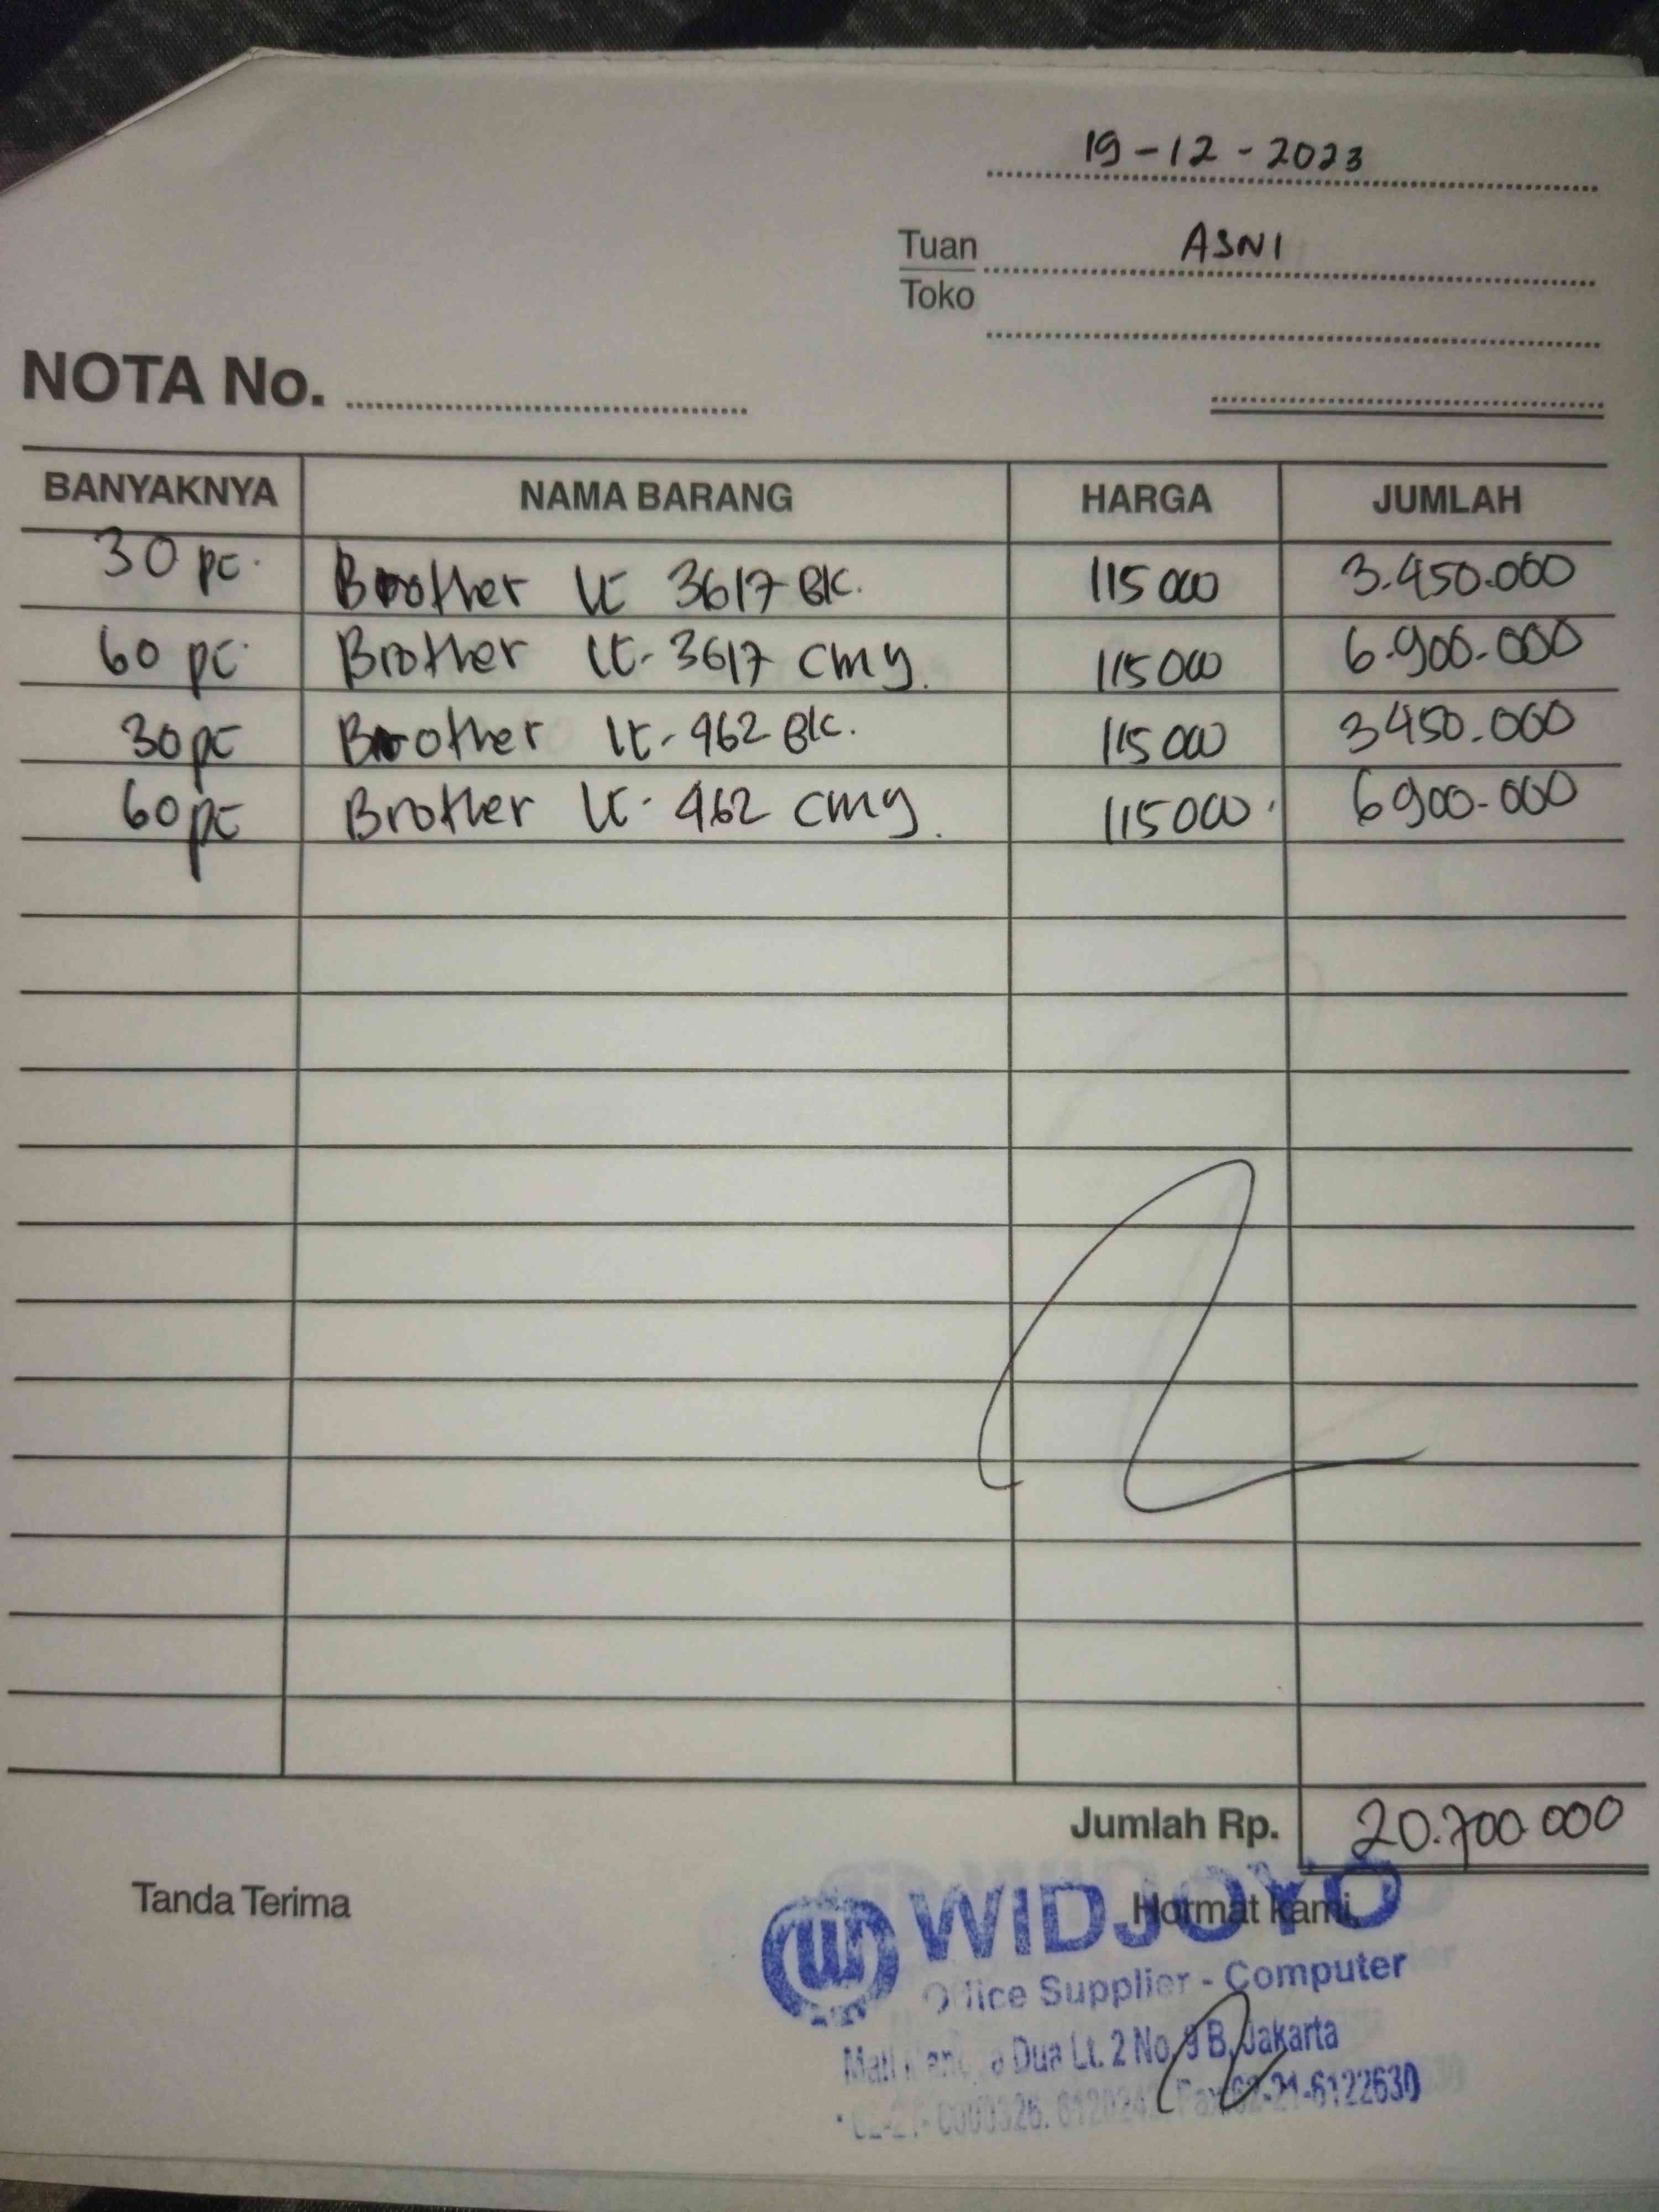 19-12-2023
Tuan ASNI
Toko
NOTA No.
BANYAKNYA NAMA BARANG HARGA JUMLAH
30 pc. Brother LC 3617 BK. 115 000 3.450.000
60 pc. Brother LC-3617 cmy. 115000 6.900.000
30pc Brother LC-462 BK. 115 000 3450.000
60pc Brother LC-462 cmy. 115000 6900.000
Jumlah Rp. 20.700.000
Tanda Terima Hormat kami,
WIDJOYO
Office Supplier - Computer
Dua Lt. 2 No. 9 B, Jakarta
Fax 62-21-6122630